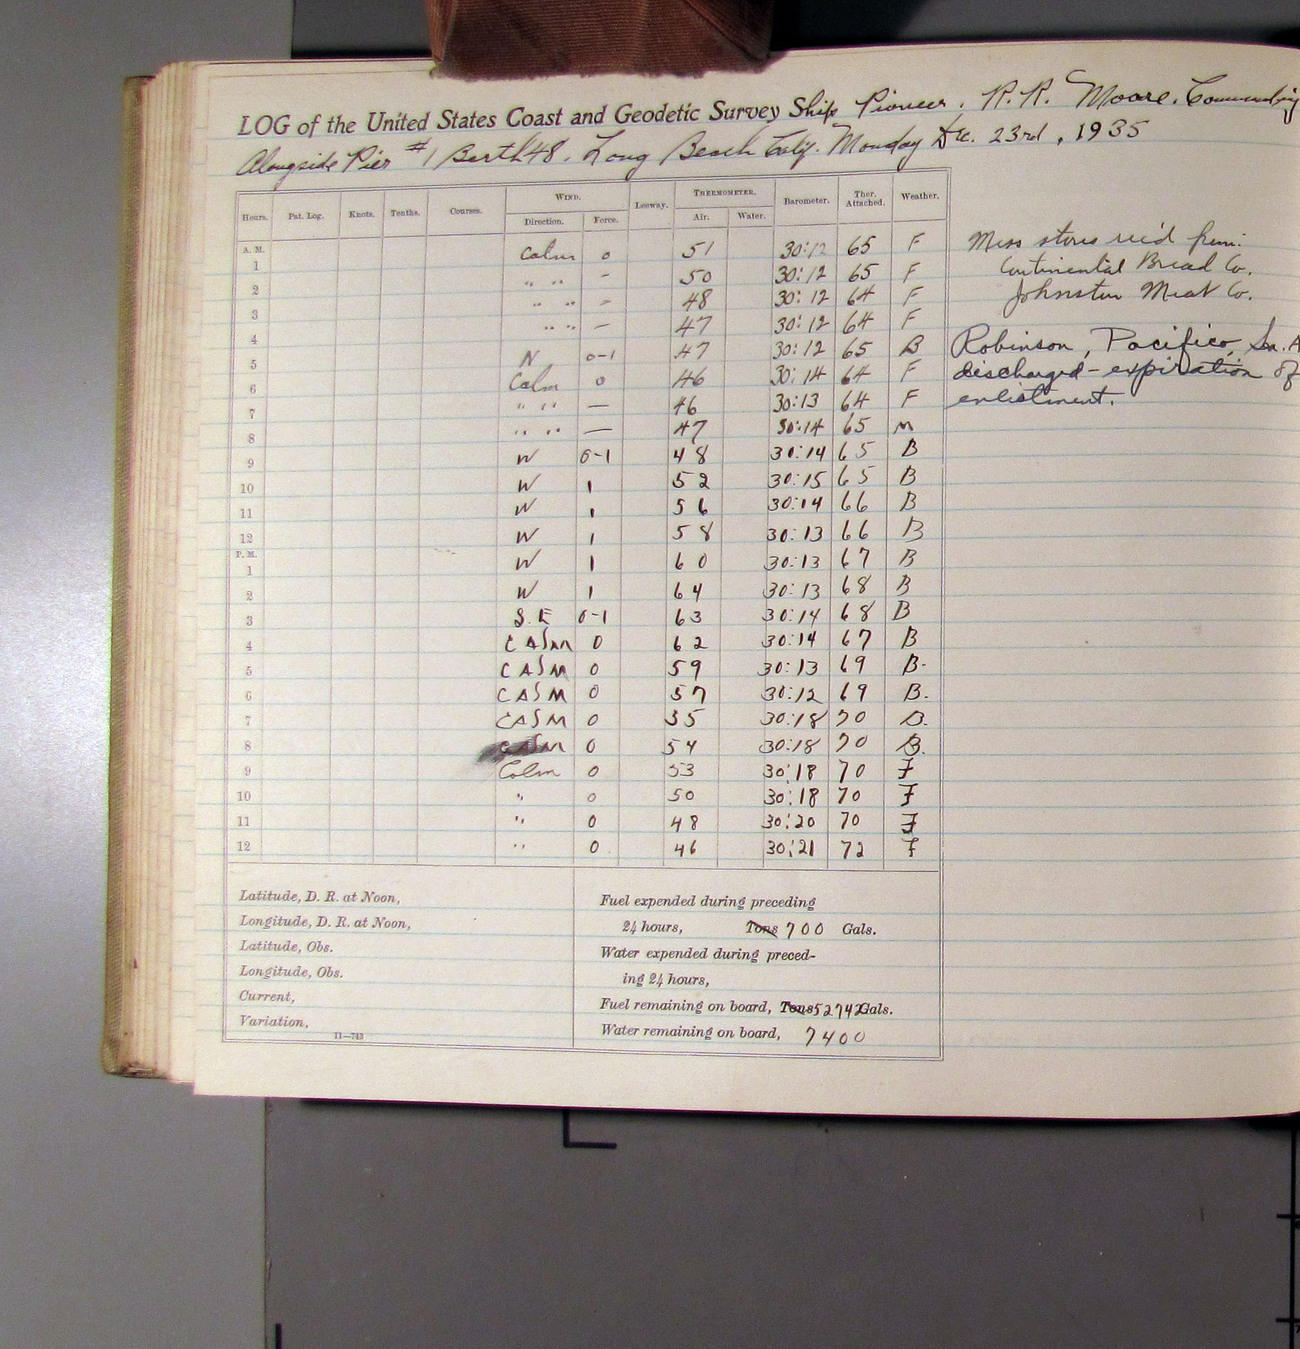 LOG of the United States Coast and Geodetic Survey Ship Pioneer. R. R. Moore. Commanding
Alongside Pier #1 Berth 48. Long Beach Calif. Monday Dec. 23rd, 1935
Hours. Pat. Log. Knots. Tenths. Courses. WIND. Direction. Force. Leeway. THERMOMETER. Air. Water. Barometer. Ther. Attached. Weather.
A. M.
1 Calm 0 51 30:12 65 F
2 " " - 50 30:12 65 F
3 " " - 48 30:12 64 F
4 " " - 47 30:12 64 F
5 N 0-1 47 30:12 65 B
6 Calm 0 46 30:14 64 F
7 " " - 46 30:13 64 F
8 " " - 47 30:14 65 M
9 W 0-1 48 30:14 65 B
10 W 1 52 30:15 65 B
11 W 1 56 30:14 66 B
12 W 1 58 30:13 66 B
P. M.
1 W 1 60 30:13 67 B
2 W 1 64 30:13 68 B
3 S.E 0-1 63 30:14 68 B
4 CALM 0 62 30:14 67 B
5 CALM 0 59 30:13 69 B.
6 CALM 0 57 30:12 69 B.
7 CALM 0 55 30:18 70 B.
8 CALM 0 54 30:18 70 B.
9 Calm 0 53 30:18 70 F
10 " 0 50 30:18 70 F
11 " 0 48 30:20 70 F
12 " 0 46 30:21 72 F
Mess stores rec'd from:
Continental Bread Co.
Johnston Meat Co.
Robinson, Pacifico, Sea. A
discharged - expiration of
enlistment.
Latitude, D. R. at Noon,
Longitude, D. R. at Noon,
Latitude, Obs.
Longitude, Obs.
Current,
Variation,
11—743
Fuel expended during preceding
24 hours, Tons 700 Gals.
Water expended during preced-
ing 24 hours,
Fuel remaining on board, Tons 52742 Gals.
Water remaining on board, 7400